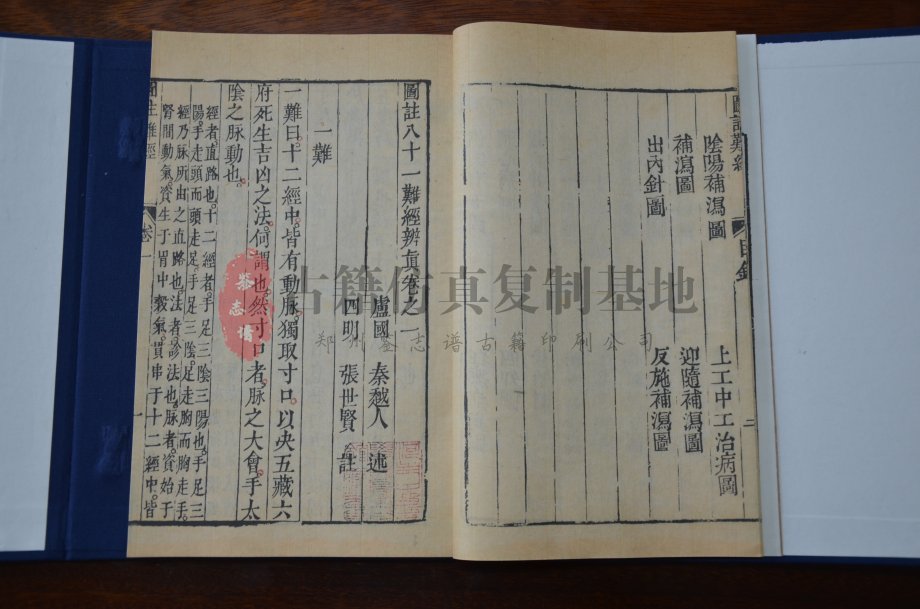 圖註難經
目錄
二
陰陽補瀉圖
上工中工治病圖
補瀉圖
迎隨補瀉圖
出內針圖
反施補瀉圖
圖註八十一難經辨眞卷之一
盧國 秦越人 述
四明 張世賢 註
一難
一難曰。十二經中。皆有動脉。獨取寸口。以决五藏六
府死生吉凶之法。何謂也。然寸口者。脉之大會。手太
陰之脉動也。
經者直路也。十二經者手足三陰三陽也。手足三
陽。手走頭而頭走足。手足三陰。足走胸而胸走手。
經乃脉所由之直路也。法者。診法也。脉者。資始于
腎間動氣。資生于胃中穀氣。貫串于十二經中。皆
圖註難經
卷一
一
古籍仿真复制基地
郑州鉴志谱古籍印刷公司